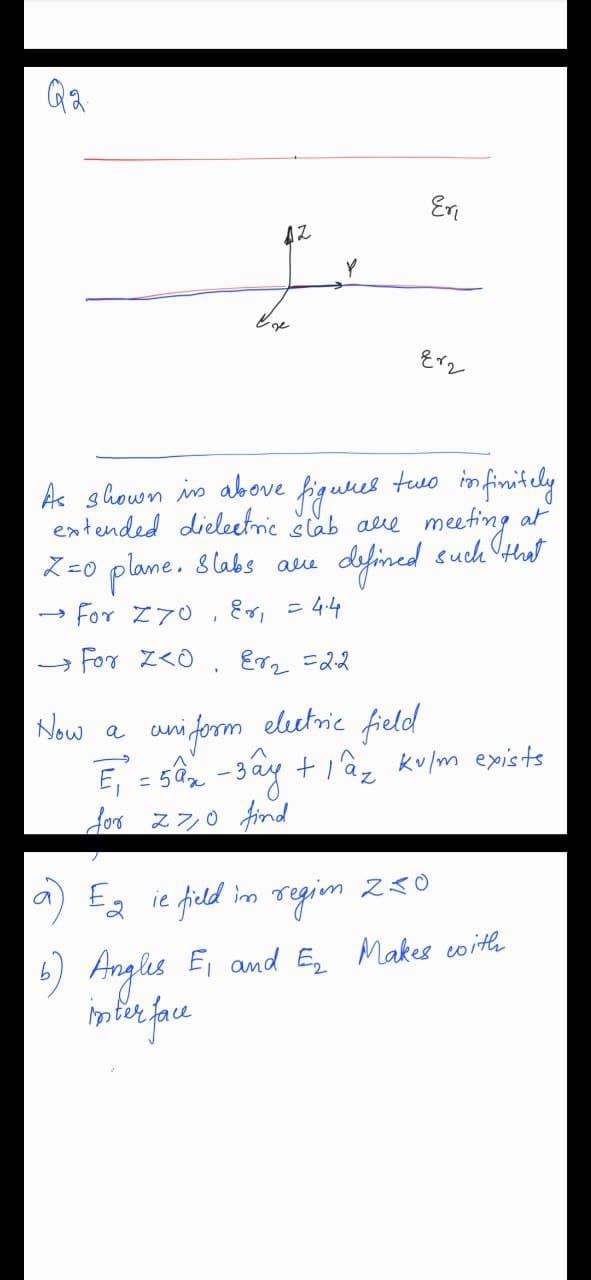 Q2.
εr1
Z
Y
x
εr2
As shown in above figures two infinitely
extended dielectric slab are meeting at
Z=0 plane. Slabs are defined such that
→ For Z>0, εr1 = 4.4
→ For Z<0, εr2 = 2.2
Now a uniform electric field
E⃗1 = 5âx - 3ây + 1âz kv/m exists
for z⩾0 find
a) E2 ie field in region Z≤0
b) Angles E1 and E2 Makes with
interface